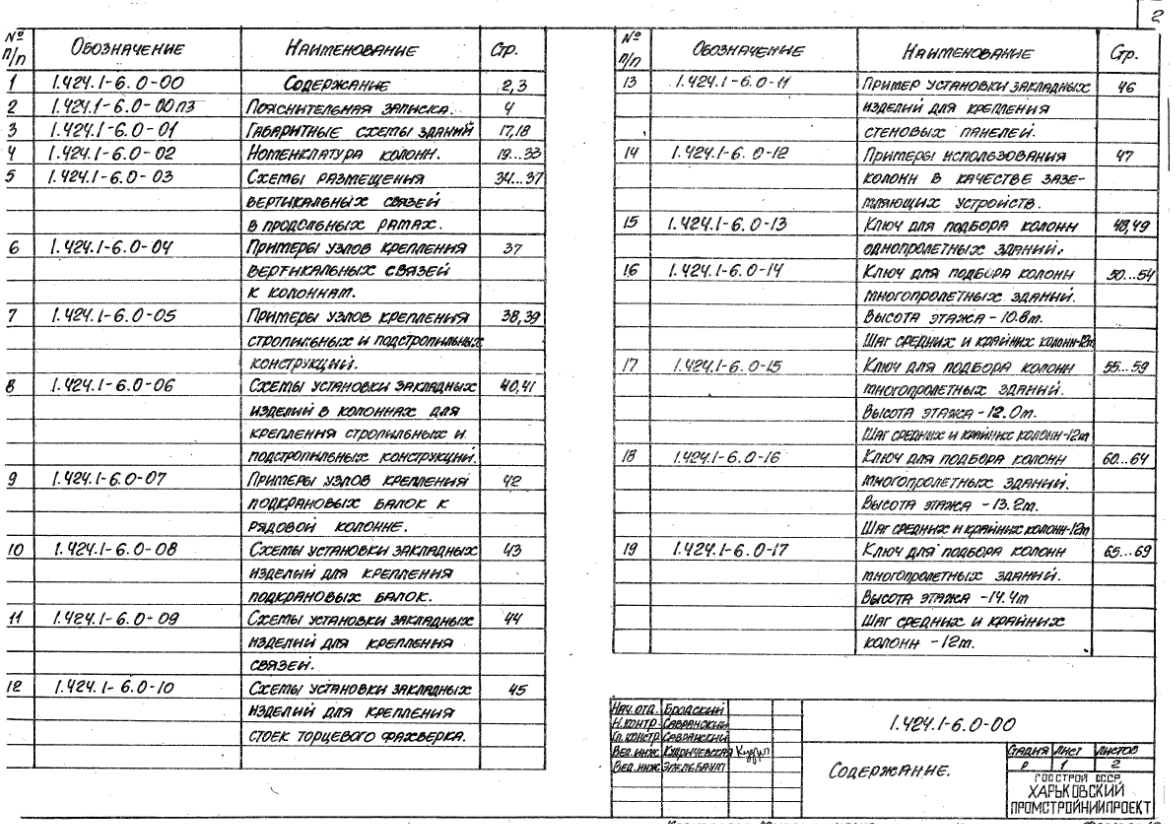 2
№ п/п Обозначение Наименование Стр.
1 1.424.1-6.0-00 Содержание 2,3
2 1.424.1-6.0-00ПЗ Пояснительная записка. 4
3 1.424.1-6.0-01 Габаритные схемы зданий 17,18
4 1.424.1-6.0-02 Номенклатура колонн. 19...33
5 1.424.1-6.0-03 Схемы размещения 34...37
вертикальных связей
в продольных рамах.
6 1.424.1-6.0-04 Примеры узлов крепления 37
вертикальных связей
к колоннам.
7 1.424.1-6.0-05 Примеры узлов крепления 38,39
стропильных и подстропильных
конструкций.
8 1.424.1-6.0-06 Схемы установки закладных 40,41
изделий в колоннах для
крепления стропильных и
подстропильных конструкций.
9 1.424.1-6.0-07 Примеры узлов крепления 42
подкрановых балок к
рядовой колонне.
10 1.424.1-6.0-08 Схемы установки закладных 43
изделий для крепления
подкрановых балок.
11 1.424.1-6.0-09 Схемы установки закладных 44
изделий для крепления
связей.
12 1.424.1-6.0-10 Схемы установки закладных 45
изделий для крепления
стоек торцевого фахверка.
№ п/п Обозначение Наименование Стр.
13 1.424.1-6.0-11 Пример установки закладных 46
изделий для крепления
стеновых панелей.
14 1.424.1-6.0-12 Примеры использования 47
колонн в качестве зазе-
мляющих устройств.
15 1.424.1-6.0-13 Ключ для подбора колонн 48,49
однопролетных зданий.
16 1.424.1-6.0-14 Ключ для подбора колонн 50...54
многопролетных зданий.
Высота этажа - 10.8м.
Шаг средних и крайних колонн-12м
17 1.424.1-6.0-15 Ключ для подбора колонн 55...59
многопролетных зданий.
Высота этажа - 12.0м.
Шаг средних и крайних колонн-12м
18 1.424.1-6.0-16 Ключ для подбора колонн 60...64
многопролетных зданий.
Высота этажа - 13.2м.
Шаг средних и крайних колонн-12м
19 1.424.1-6.0-17 Ключ для подбора колонн 65...69
многопролетных зданий.
Высота этажа - 14.4м
Шаг средних и крайних
колонн - 12м.
Нач.отд. Бродский
Н.контр. Савранский
Гл.констр Савранский
Вед.инж. Кудричевская
Вед.инж Эпельбаум
1.424.1-6.0-00
Содержание.
Стадия Лист Листов
Р 1 2
ГОССТРОЙ СССР
ХАРЬКОВСКИЙ
ПРОМСТРОЙНИИПРОЕКТ